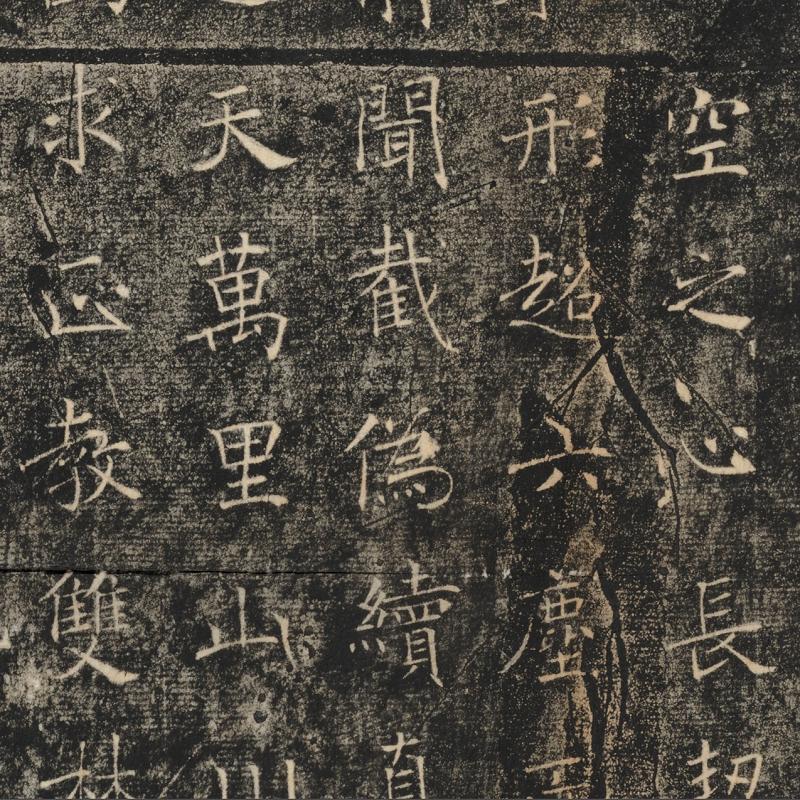 空之心長
形超六塵
聞截偽續真
天萬里山川
求正教雙林